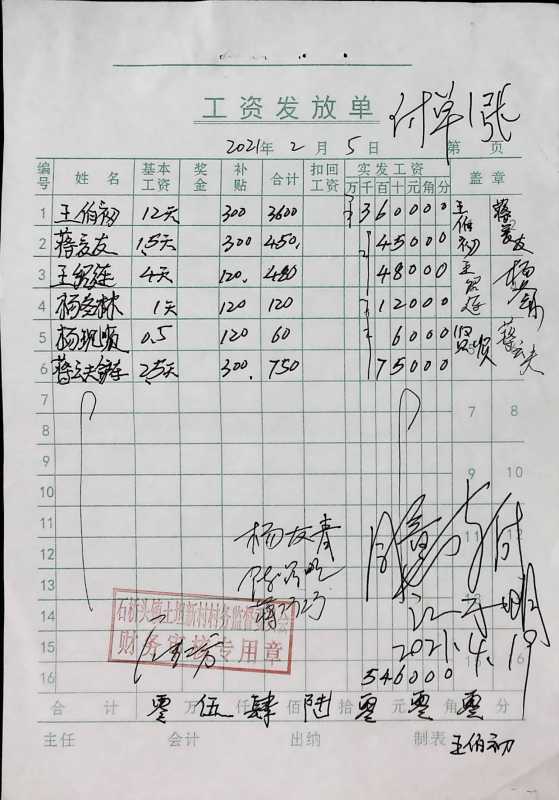 工资发放单
付单1张
2021年 2 月 5 日 第 页
编号 姓名 基本工资 奖金 补贴 合计 扣回工资 实发工资 万千百十元角分 盖章
1 王伯初 12天 300 3600 360000 王伯初
2 蒋爱友 1.5天 300 450. 45000 蒋爱友
3 4天 120. 480 48000
4 杨冬林 1天 120 120 12000
5 杨现顺 0.5 120 60 6000
6 2.5天 300. 750 75000 蒋云夫
7 7 8
8
9 9 10
10
11
12
杨友春
13
14
石桥头镇上姐新村村务监督委员会
财务审核专用章
15
2021.4.19
16 546000
合计 零万伍仟肆佰陆拾零元零角零分
主任 会计 出纳 制表 王伯初